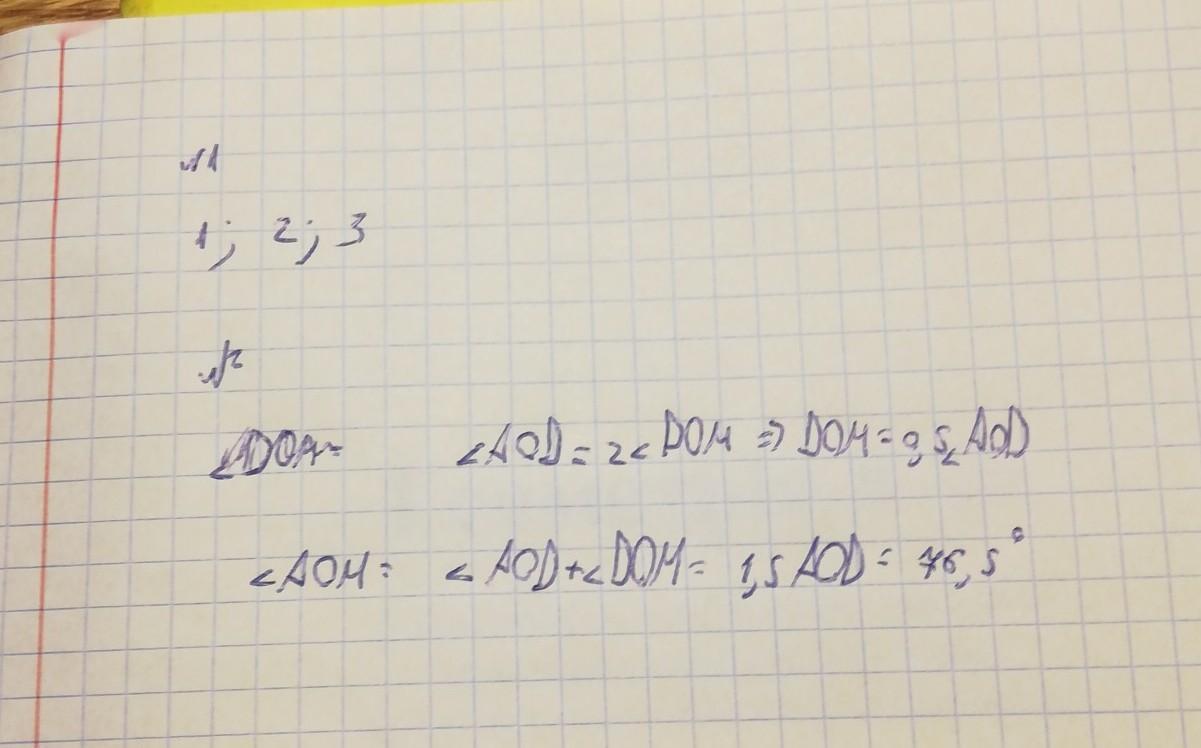 №1
1; 2; 3
№2
∠AOD = 2∠DOM ⇒ DOM = 0,5∠AOD
∠AOM = ∠AOD+∠DOM = 1,5 AOD = 76,5°